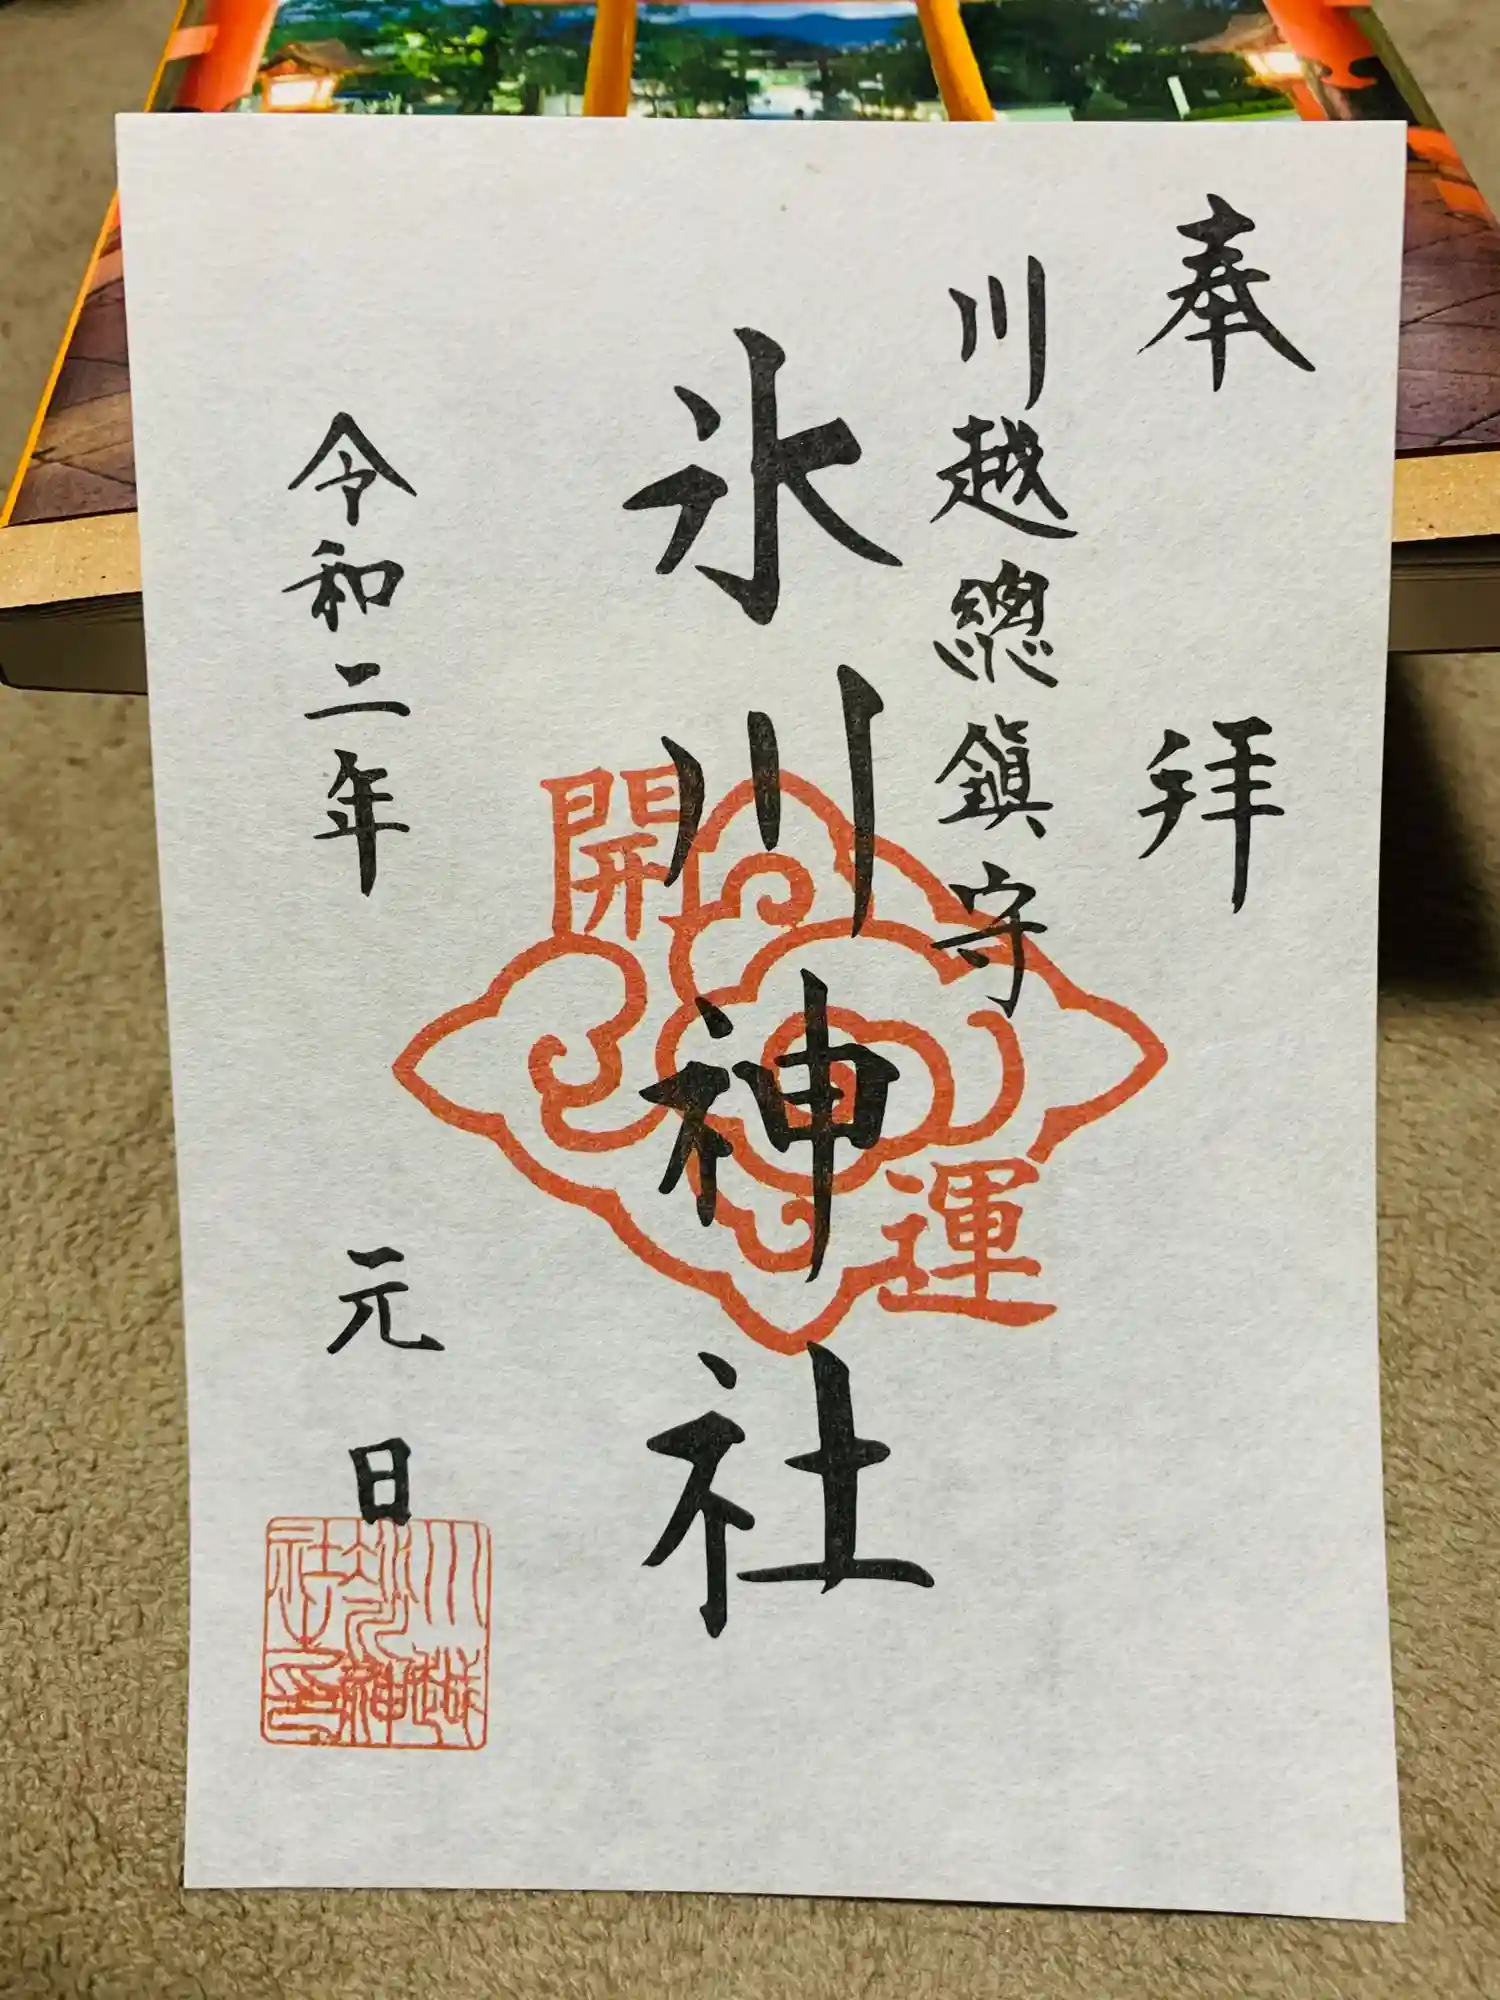 奉拝
川越總鎮守
氷川神社
開運
令和二年元日
川越氷川神社之印